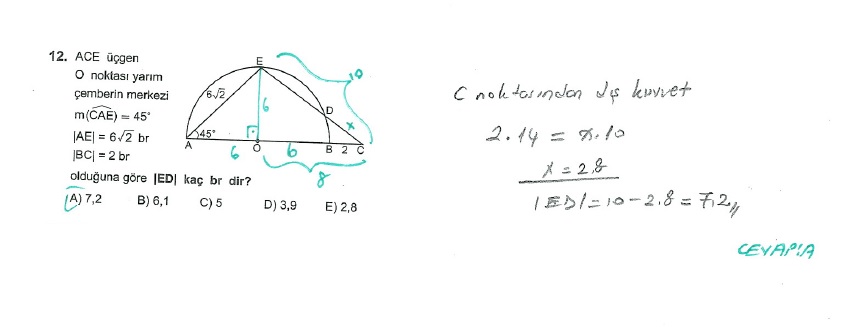 12. ACE üçgen
O noktası yarım
çemberin merkezi
m(CAE) = 45°
|AE| = 6√2 br
|BC| = 2 br
olduğuna göre |ED| kaç br dir?
A) 7,2 B) 6,1 C) 5 D) 3,9 E) 2,8
E
10
6√2
6
D
x
45°
A
O
B 2 C
6
6
8
C noktasından dış kuvvet
2.14 = x.10
x = 2,8
|ED| = 10 - 2,8 = 7,2,,
CEVAP:A